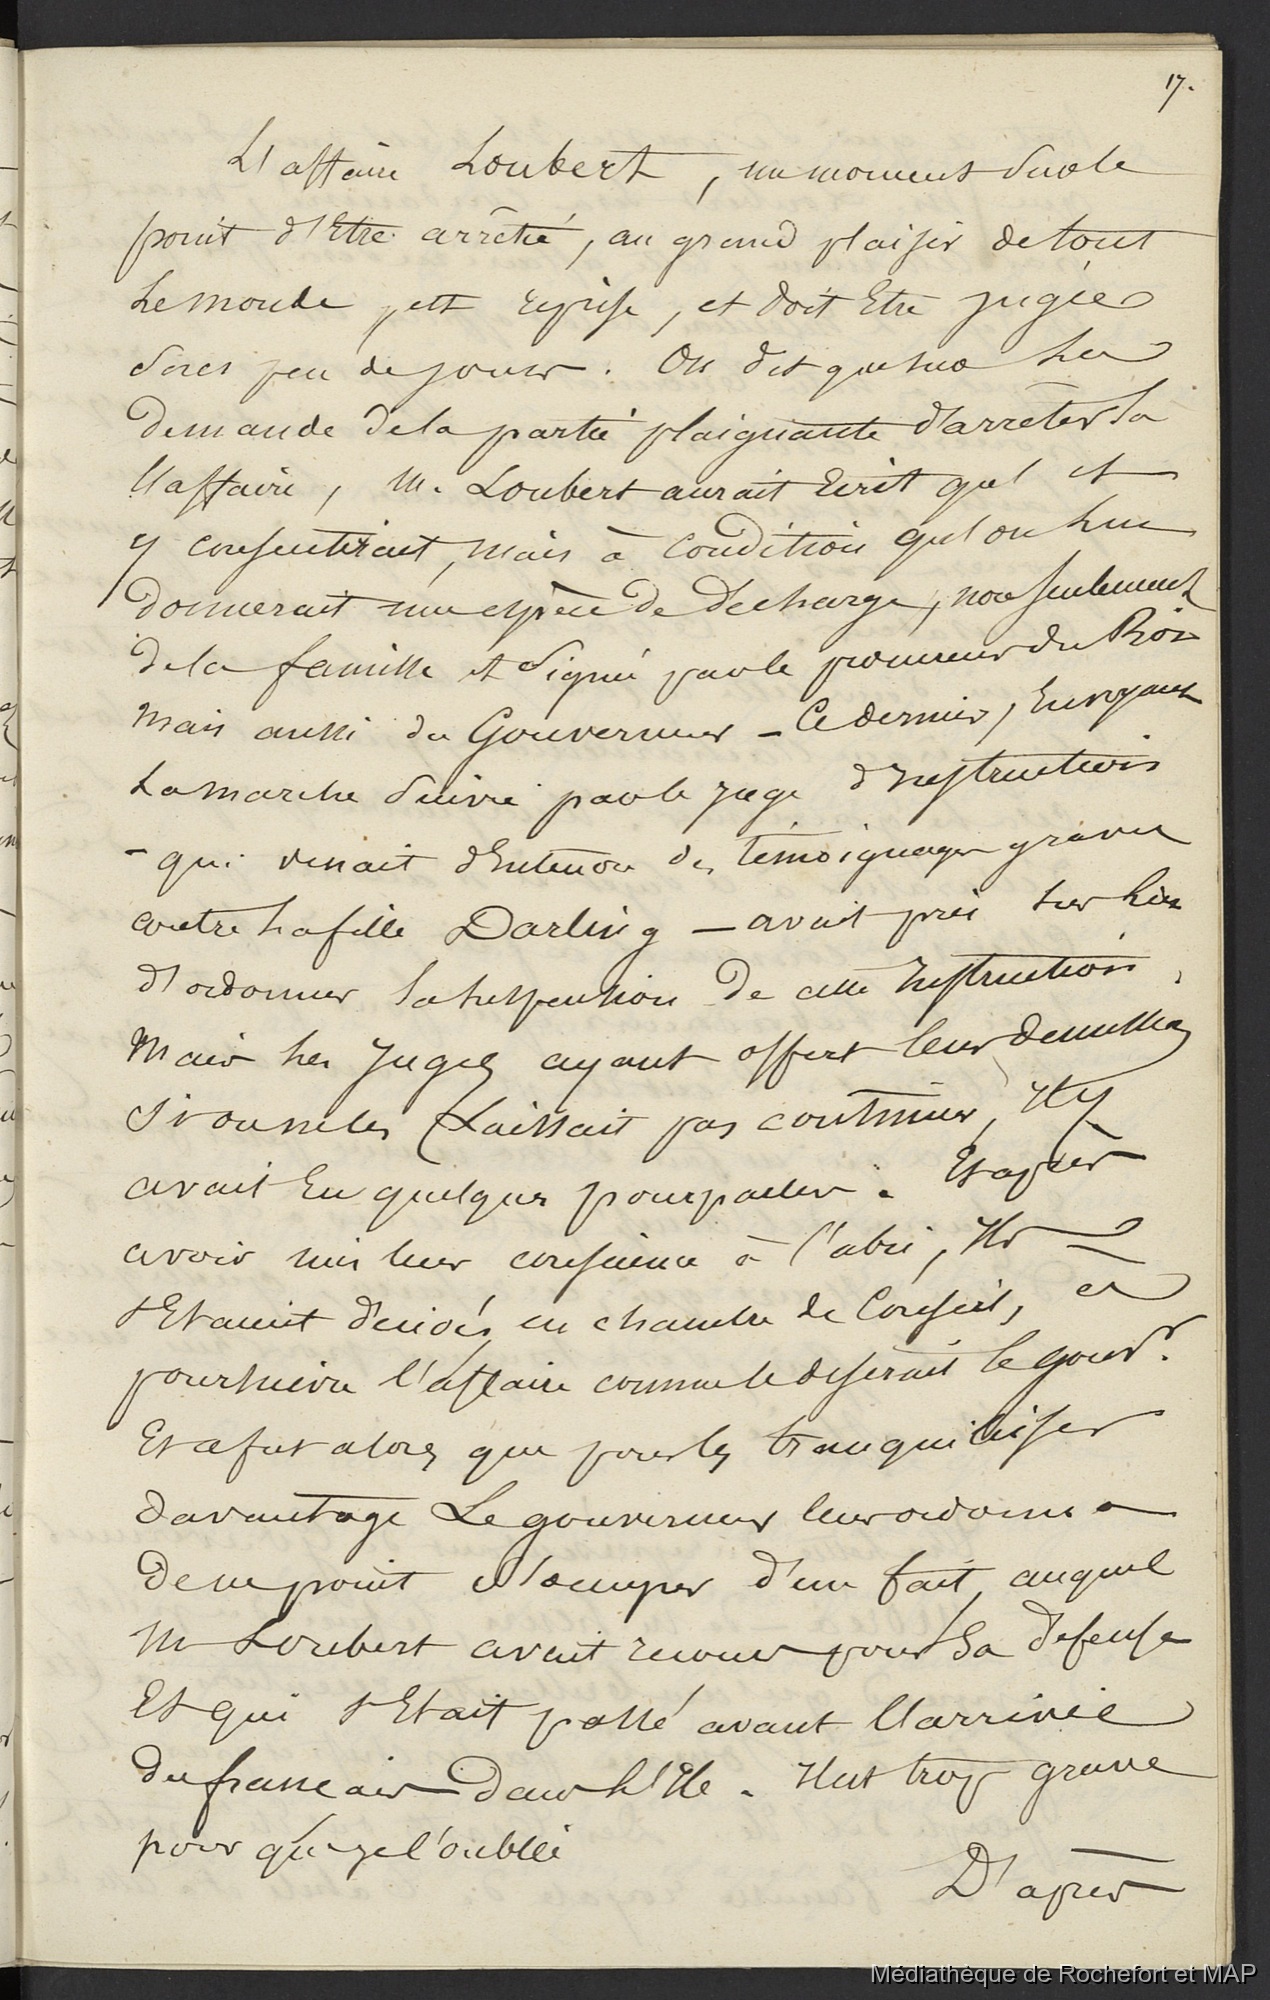 17.
L'affaire Loubert, un moment sur le
point d'Etre arrêtée, au grand plaisir de tout
le monde, est reprise, et doit Etre jugée
sous peu de jours. On dit que sur la
demande de la partie plaignante d'arrêter la
l'affaire, M. Loubert aurait Ecrit qu'il
y consentirait, mais à condition qu'on lui
donnerait une espèce de decharge, non seulement
de la famille et signé par le procureur du Roi
mais aussi du Gouverneur - Ce dernier, En voyant
La marche suivie par le juge d'Instruction
- qui venait d'Entendre des témoignages graves
contre la fille Darling - avait pris sur lui
d'ordonner la suspension de cette Instruction,
Mais les Juges ayant offert leur demission
si on ne les laissait pas continuer, Il y
avait Eu quelques pourparlers. Et après
avoir mis leur conscience à l'abri, Ils
s'Etaient décidés, en chambre de Conseil, à
poursuivre l'affaire comme le desirait le gouvr.
Et ce fut alors que pour les tranquiliser
davantage Le gouverneur leur ordonna
de ne point s'occuper d'un fait, auquel
M Loubert avait recours pour sa défense
Et qui s'Etait passé avant l'arrivée
du francais dans l'Ile. Il est trop grave
pour que je l'oublie
D'après
Médiathèque de Rochefort et MAP